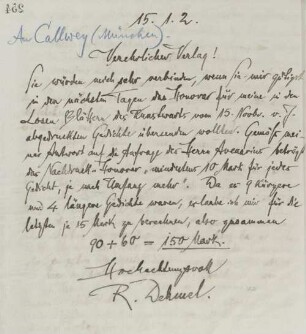 15. 1. 2.
An Callwey (München)
Verehrlicher Verlag!
Sie würden mich sehr verbinden, wenn Sie mir gütigst
in den nächsten Tagen das Honorar für meine in den
Losen Blättern des Kunstwarts vom 15. Novbr. v. J.
abgedruckten Gedichte übersenden wollten. Gemäß mei-
ner Antwort auf die Anfrage des Herrn Avenarius beträgt
das Nachdruck-Honorar „mindestens 10 Mark für jedes
Gedicht, je nach Umfang mehr". Da es 9 kürzere
und 4 längere Gedichte waren, erlaube ich mir für die
letzten je 15 Mark zu berechnen, also zusammen
90 + 60 = 150 Mark.
Hochachtungsvoll
R. Dehmel.